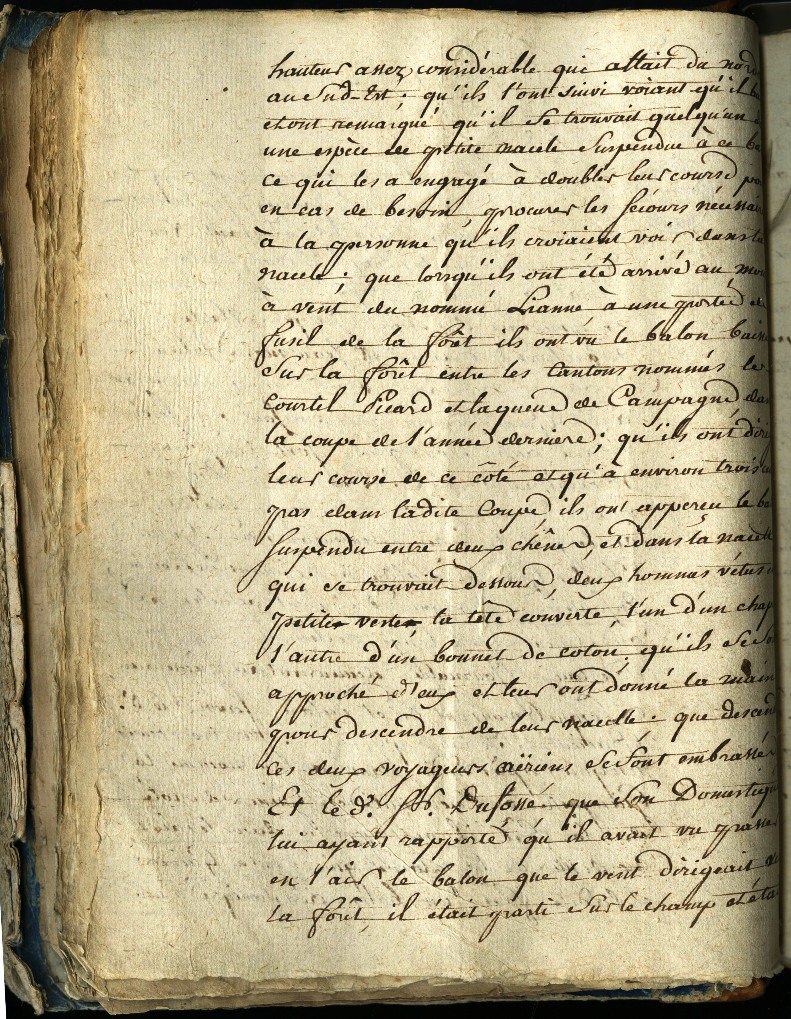 hauteur assez considérable qui allait du nord
au Sud-Est ; qu'ils l'ont suivi voiant qu'il b
et ont remarqué qu'il se trouvait quelqu'un
une espèce de petite nacele suspendue à ce ba
ce qui les a engagé à doubler leur course po
en cas de besoin, procurer les sécours nécessai
à la personne qu'ils croiaient voir dans la
nacele ; que lorsqu'ils ont été arrivé au mou
à vent du nommé Lianne à une portée de
fusil de la forêt ils ont vu le balon bais
sur la forêt entre les Cantons nommés le
Courtel Picard et la queue de Campagne dan
la coupe de l'année derniere ; qu'ils ont diri
leur course de ce côté et qu'à environ trois
pas dans ladite Coupe, ils ont apperçu le ba
suspendu entre deux chênes, et dans la nacelle
qui se trouvait dessous, deux hommes vétus
petites vestes la tête couverte, l'un d'un chap
l'autre d'un bonnet de coton, qu'ils se so
approché d'eux et leur ont donné la main
pour descendre de leur nacelle ; que descen
ces deux voyageurs aëriens se sont embrassé
Et le d. Sr. Dufossé que son Domestiqu
lui ayant rapporté qu'il avait vu passer
en l'air le balon que le vent dirigeait
la forêt, il était parti sur le champ et éta